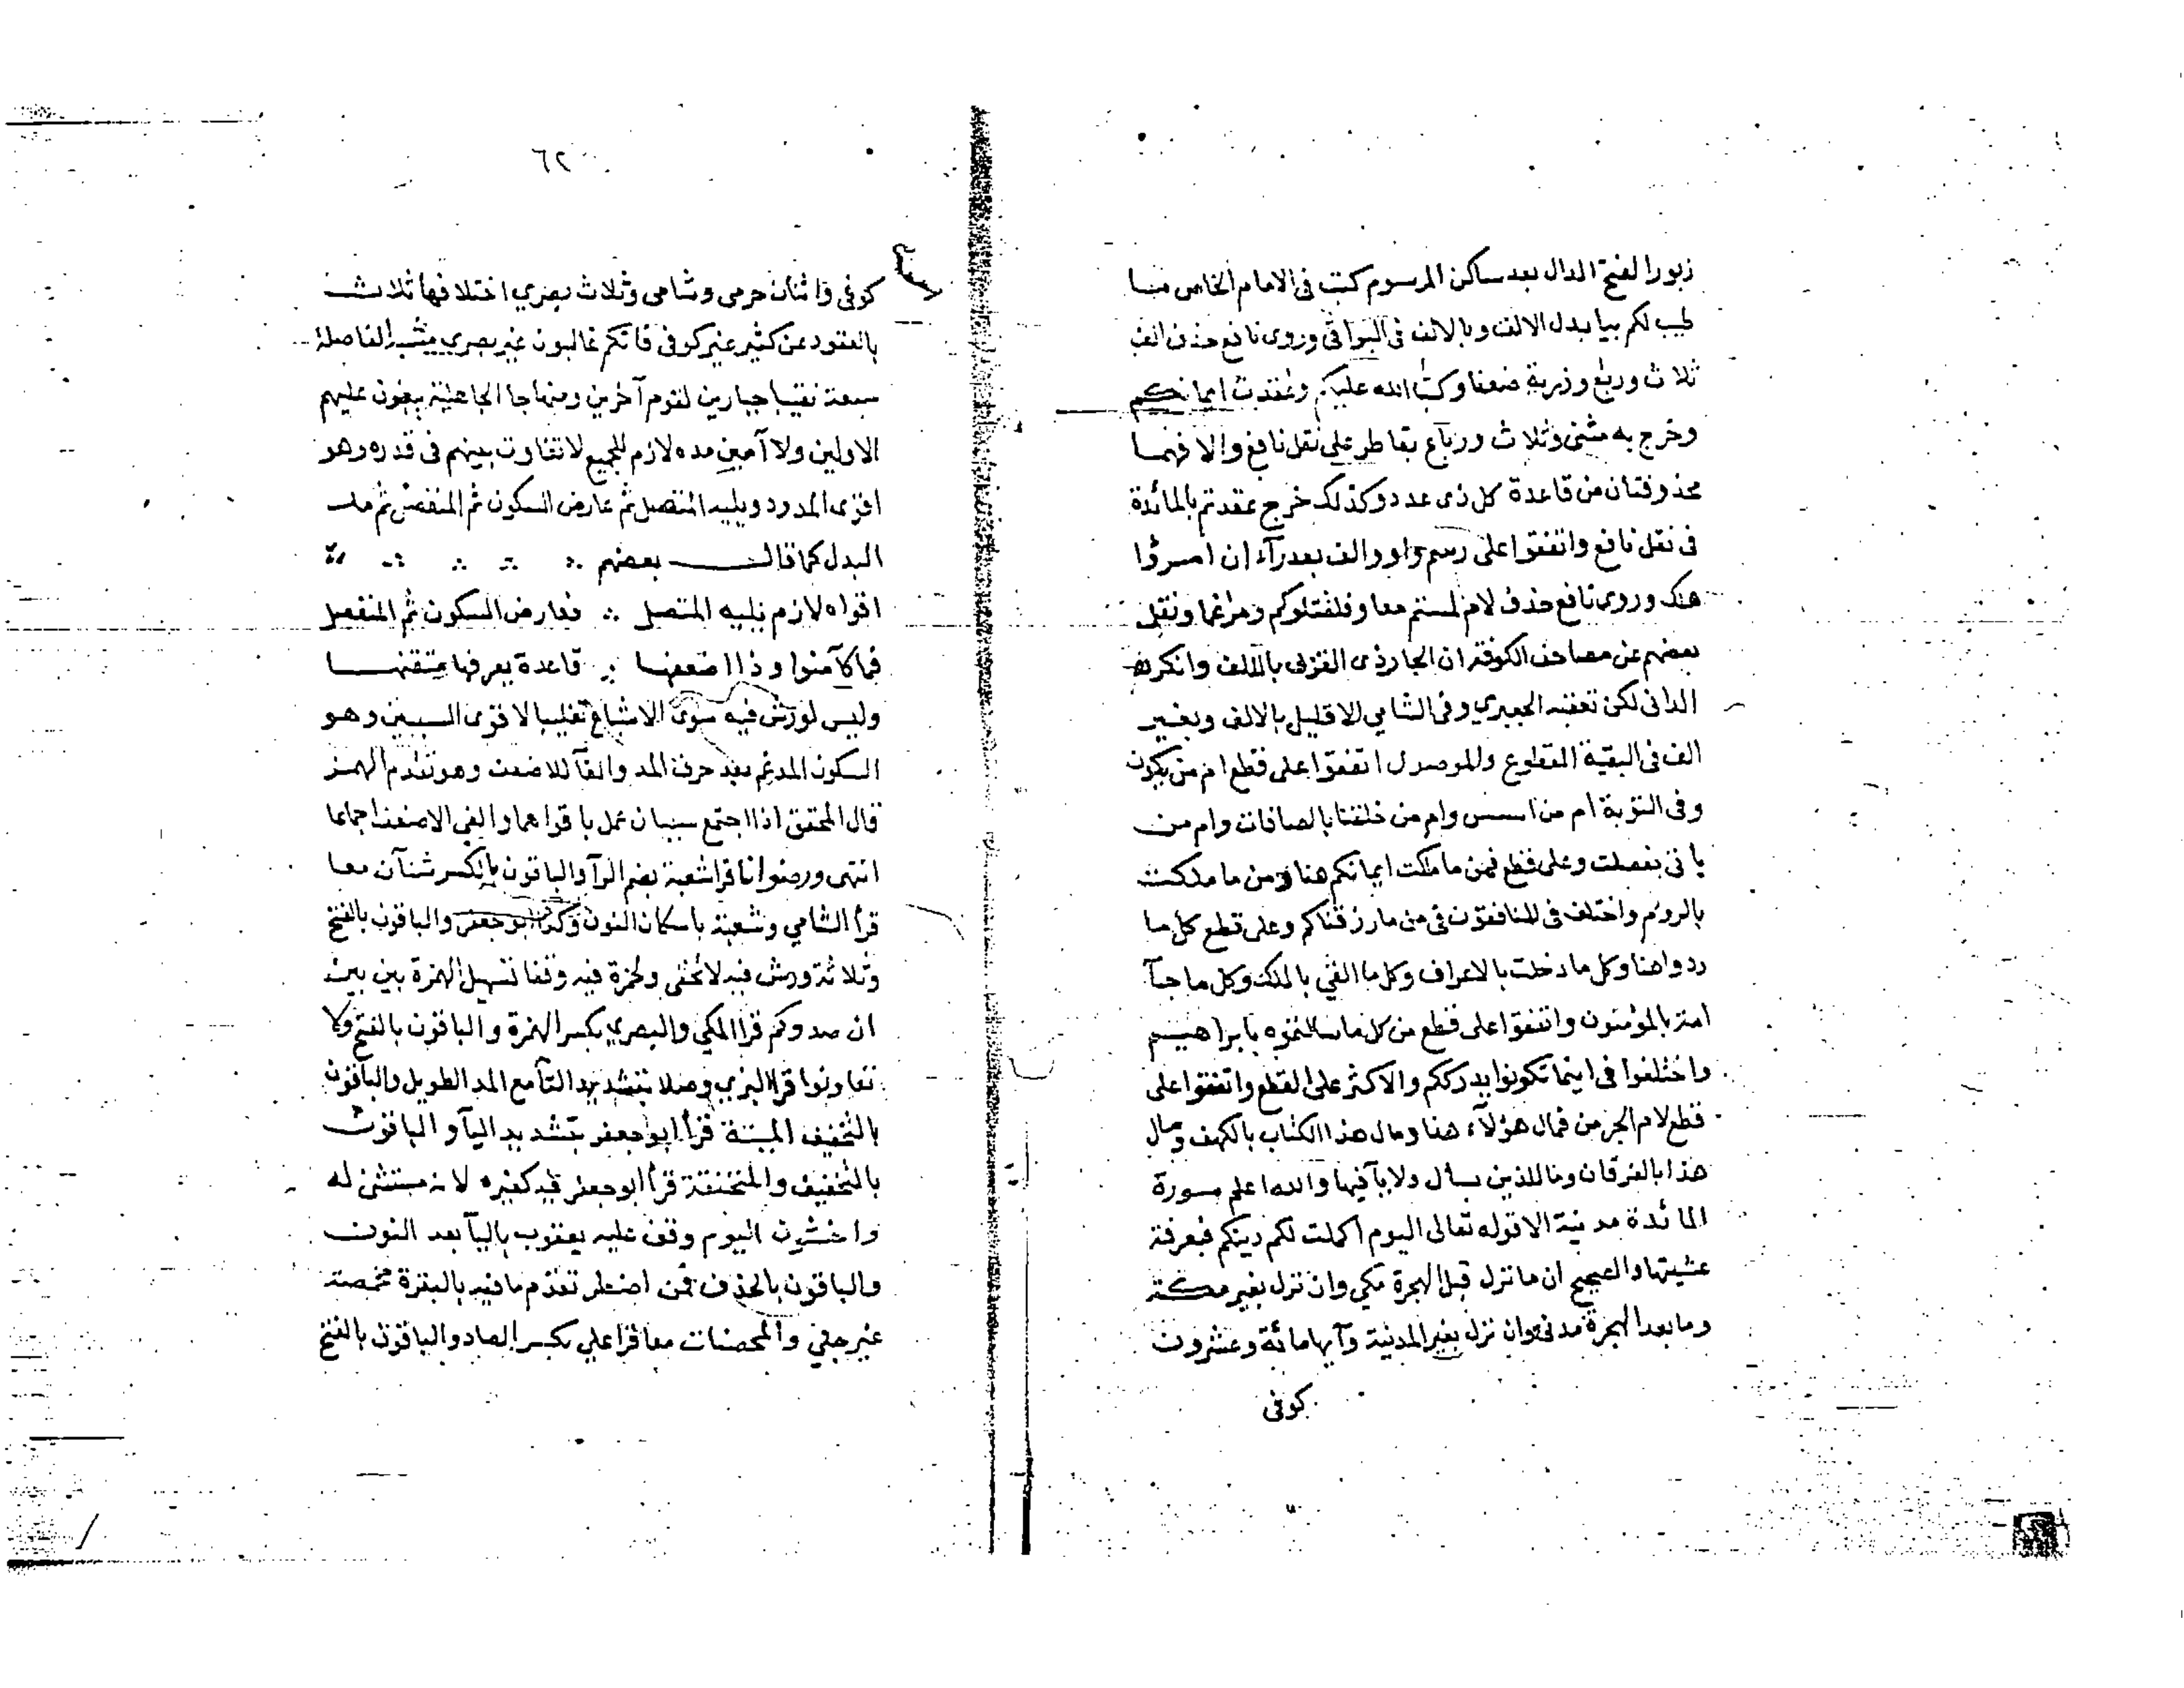 زبورا لفتح الدال بعد ساكن المرسوم كتب فى الامام الخاص مسا
طيب لكم بيا بدل الالف وبالالف فى البواقى وروى نافع حذف الف
ثلاث وربع وذرية ضعفا وكتب الله عليكم وعقدت ايمانكم
وخرج به مثنى وثلاث ورباع بفاطر على نقل نافع والا فهما
محذوفتان من قاعدة كل ذى عدد وكذلك خرج عقدتم بالمائدة
فى نقل نافع واتفقوا على رسم واو والف بعد رآء ان امرؤا
هلك وروى نافع حذف لام لمستم معا وفلقتلوكم ومراغما ونقل
بعضهم عن مصاحف الكوفة ان الجار ذى القربى بالالف وانكره
الدانى لكن تعقبه الجعبري وفى الشامي الا قليل بالالف وبغير
الف فى البقية المقطوع والموصول اتفقوا على قطع ام من يكون
وفى التوبة ام من اسس وام من خلقنا بالصافات وام من
ياتى بفصلت وعلى قطع فمن ما ملكت ايمانكم هنا ومن ما ملكت
بالروم واختلف فى المنافقون فى من ما رزقناكم وعلى قطع كل ما
ردوا هنا وكل ما دخلت بالاعراف وكل ما القي بالملك وكل ما جآ
امة بالمؤمنون واتفقوا على قطع من كل ما سالتموه بابراهيم
واختلفوا فى اينما تكونوا يدرككم والاكثر على القطع واتفقوا على
قطع لام الجر من فمال هؤلآء هنا ومال هذا الكتاب بالكهف ومال
هذا بالفرقان وفمال الذين بسال ولا يآ فيها والله اعلم سورة
المائدة مدنية الا قوله تعالى اليوم اكملت لكم دينكم فبعرفة
عشيتها والصحيح ان ما نزل قبل الهجرة مكي وان نزل بغير مكة
وما بعد الهجرة مدنى وان نزل بغير المدينة وآيها مائة وعشرون
كوفى
٦٢
كوفى واثنان حرمى وشامى وثلاث بصري اختلافها ثلاث
بالعقود عن كثير غير كوفى فانكم غالبون غير بصري مشبه الفاصلة
سبعة نقيبا جبارين لقوم آخرين ومنهاجا الجاهلية يبغون عليهم
الاولين ولا آمين مده لازم للجميع لا تفاوت بينهم فى قدره وهو
اقوى المدود ويليه المتصل ثم عارض السكون ثم المنفصل ثم مد
البدل كما قال بعضهم
اقواه لازم يليه المتصل ∴ فعارض السكون ثم المنفصل
فما كآمنوا وذا اضعفها ∴ قاعدة يعرفها متقنها
وليس لورش فيه سوى الاشباع تغليبا لاقوى السببين وهو
السكون المدغم بعد حرف المد والغآ للاضعف وهو تقدم الهمز
قال المحقق اذا اجتمع سببان عمل باقواهما والغي الاضعف اجماعا
انتهى ورضوانا قرا شعبة بضم الرآ والباقون بالكسر شنآن معا
قرأ الشامي وشعبة باسكان النون وكذا ابو جعفر والباقون بالفتح
وثلاثة ورش فيه لا تخفى ولحمزة فيه وقفا تسهيل الهمزة بين بين
ان صدوكم قرا المكي والبصري بكسر الهمزة والباقون بالفتح ولا
تعاونوا قرا البزي وصلا بتشديد التآ مع المد الطويل والباقون
بالتخفيف الميتة قرأ ابو جعفر بتشديد اليآ والباقون
بالتخفيف والمنخنقة قرأ ابو جعفر فيه كغيره لانه مستثنى له
واخشون اليوم وقف عليه يعقوب باليآ بعد النون
والباقون بالحذف فمن اضطر تقدم ما فيه بالبقرة مخمصة
غير جلي والمحصنات معا قرا علي بكسر الصاد والباقون بالفتح